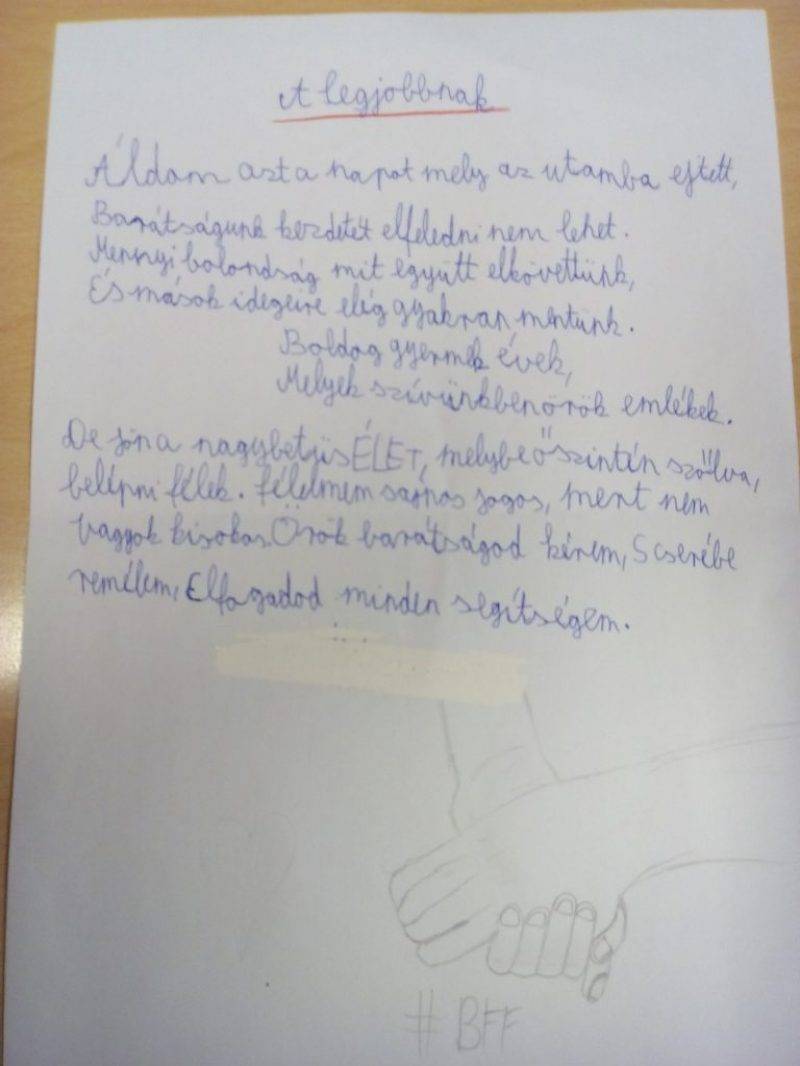 A legjobbnak
Áldom azt a napot mely az utamba ejtett,
Barátságunk kezdetét elfeledni nem lehet.
Mennyi bolondság mit együtt elkövettünk,
És mások idegeire elég gyakran mentünk.
Boldog gyermek évek,
Melyek szívünkben örök emlékek.
De jön a nagybetűs ÉLET, melybe őszintén szólva,
belépni félek. Félelmem sajnos jogos, mert nem
vagyok kisokos. Örök barátságod kérem, S cserébe
remélem, Elfogadod minden segítségem.
#BFF